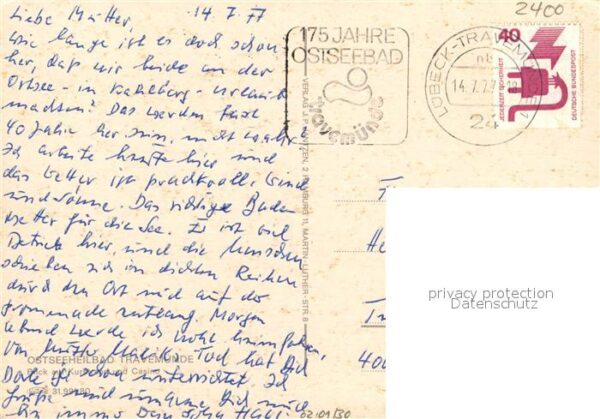 Liebe Mutter, 14.7.77
wie lange ist es doch schon
her, daß wir beide an der
Ostsee - in Kahlberg - Urlaub
machten? Das werden fast
40 Jahre her sein, nicht wahr?
Ich arbeite heute hier und
das Wetter ist prachtvoll. Wind
und Sonne. Das richtige Bade
wetter für die See. Es ist viel
Betrieb hier, und die Menschen
schieben sich in dichten Reihen
durch den Ort und auf der
Promenade entlang. Morgen
abend werde ich wohl heimfahren.
Von Tod hat Dich
ja schon unterrichtet. Ich
grüße und umarme Dich und
bin immer Dein Sohn
OSTSEEHEILBAD TRAVEMÜNDE
Blick auf Kurhaus und Casino
02.01/30
VERLAG J. P. 2 HAMBURG 11, MARTIN-LUTHER-STR. 8
175 JAHRE
OSTSEEBAD
Travemünde
LÜBECK-TRAVEMÜNDE 1
nb
14.7.77
24
2400
40
JEDERZEIT SICHERHEIT
DEUTSCHE BUNDESPOST
400
privacy protection
Datenschutz